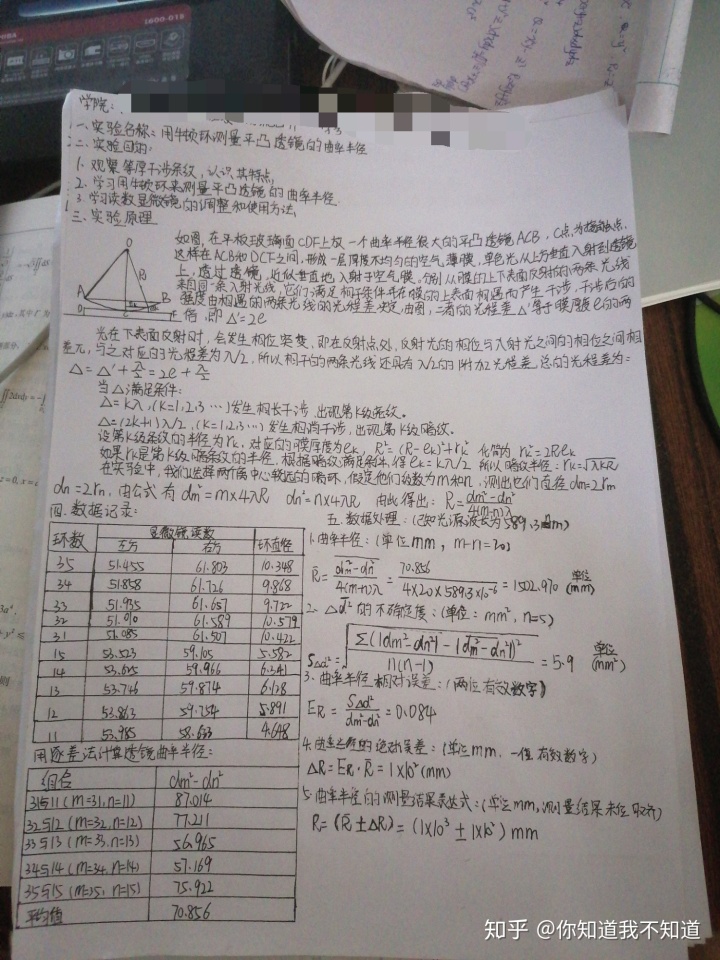 1600-019
学院:
一、实验名称:用牛顿环测量平凸透镜的曲率半径
二、实验目的:
1. 观察等厚干涉条纹,认识其特点
2. 学习用牛顿环来测量平凸透镜的曲率半径.
3. 学习读数显微镜的调整和使用方法,
三、实验原理
如图,在平板玻璃面CDF上放一个曲率半径很大的平凸透镜ACB,C点为接触点,
这样在ACB和DCF之间,形成一层厚度不均匀的空气薄膜,单色光从上方垂直入射到透镜
上,透过透镜,近似垂直地入射于空气膜。分别从膜的上下表面反射的两条光线
来自同一条入射光线,它们满足相干条件并在膜的上表面相遇而产生干涉,干涉后的
强度由相遇的两条光线的光程差决定,由图,二者的光程差Δ'等于膜厚度e的两
倍,即Δ'=2e
光在下表面反射时,会发生相位突变,即在反射点处,反射光的相位与入射光之间的相位之间相
差π,与之对应的光程差为λ/2,所以相干的两条光线还具有λ/2的附加光程差,总的光程差为:
Δ=Δ'+λ/2=2e+λ/2
当Δ满足条件:
Δ=kλ,(k=1,2,3…)发生相长干涉,出现第k级条纹。
Δ=(2k+1)λ/2,(k=1,2,3…)发生相消干涉,出现第k级暗纹。
设第k级条纹的半径为rk,对应的膜厚度为ek,R²=(R-ek)²+rk² 化简为 rk²=2Rek
如果rk是第k级暗条纹的半径,根据暗纹满足条件,得ek=kλ/2 所以暗纹半径:rk=√λkR
在实验中,我们选择两个离中心较远的暗环,假定他们的级数为m和n,测出它们直径dm=2rm
dn=2rn,由公式有 dm²=m×4λR dn²=n×4λR 由此得出:R=(dm²-dn²)/4(m-n)λ
四、数据记录:
环数 显微镜读数 环直径
左方 右方
35 51.455 61.803 10.348
34 51.858 61.726 9.868
33 51.935 61.657 9.722
32 51.010 61.589 10.579
31 51.085 61.507 10.422
15 53.523 59.105 5.582
14 53.625 59.966 6.341
13 53.746 59.874 6.128
12 53.863 59.754 5.891
11 53.985 58.633 4.648
用逐差法计算透镜曲率半径:
组合 dm²-dn²
31与11(m=31,n=11) 87.014
32与12(m=32,n=12) 77.211
33与13(m=33,n=13) 56.965
34与14(m=34,n=14) 57.169
35与15(m=35,n=15) 75.922
平均值 70.856
五、数据处理:(已知光源波长为589.3nm)
1. 曲率半径:(单位mm,m-n=20)
R̄=(dm²-dn²)/4(m-n)λ=70.856/(4×20×589.3×10⁻⁶)=1502.970 单位(mm)
2. Δd²的不确定度:(单位:mm²,n=5)
SΔd²=√(Σ(|dm²-dn²|-|dm²-dn²|)²/n(n-1))=5.9 单位(mm²)
3. 曲率半径相对误差:(两位有效数字)
ER=SΔd²/(dm²-dn²)=0.084
4. 曲率半径的绝对误差:(单位mm,一位有效数字)
ΔR=ER·R̄=1×10²(mm)
5. 曲率半径的测量结果表达式:(单位mm,测量结果末位取齐)
R=(R̄±ΔR)=(1×10³±1×10²)mm
知乎 @你知道我不知道